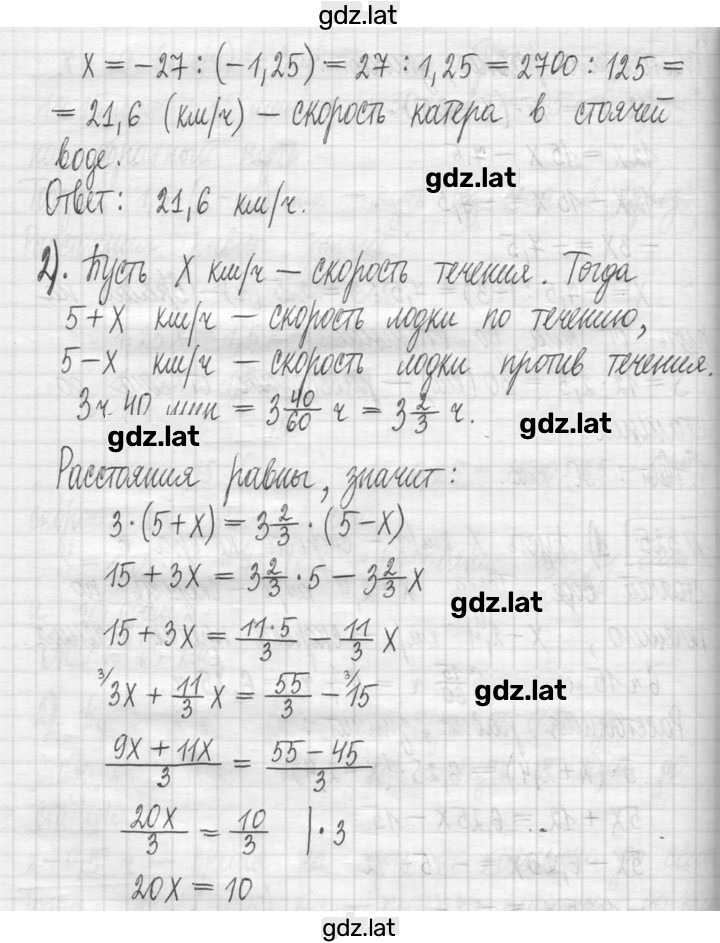 gdz.lat
x = -27 : (-1,25) = 27 : 1,25 = 2700 : 125 =
= 21,6 (км/ч) – скорость катера в стоячей
воде.
gdz.lat
Ответ: 21,6 км/ч.
2). Пусть x км/ч – скорость течения. Тогда
5+x км/ч – скорость лодки по течению,
5-x км/ч – скорость лодки против течения.
3 ч. 40 мин = 3 40/60 ч = 3 2/3 ч.
gdz.lat
gdz.lat
Расстояния равны, значит:
3·(5+x) = 3 2/3 · (5-x)
15 + 3x = 3 2/3 · 5 - 3 2/3 x
gdz.lat
15 + 3x = 11·5/3 - 11/3 x
3/ 3x + 11/3 x = 55/3 - 3/ 15
gdz.lat
9x + 11x/3 = 55 - 45/3
20x/3 = 10/3 | · 3
20x = 10
gdz.lat